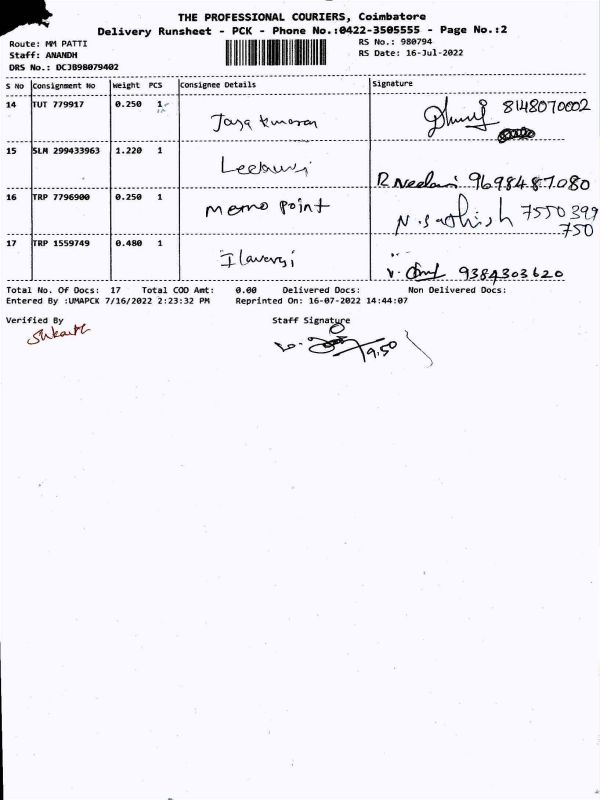 THE PROFESSIONAL COURIERS, Coimbatore
Delivery Runsheet - PCK - Phone No.:0422-3505555 - Page No.:2
Route: MM PATTI
RS No.: 980794
Staff: ANANDH
RS Date: 16-Jul-2022
DRS No.: DCJB98079402
S No Consignment No Weight PCS Consignee Details Signature
14 TUT 779917 0.250 1 Jaya kumaran 8148070002
15 SLM 299433963 1.220 1
R Neelani 9698487080
16 TRP 7796900 0.250 1 Memo point N. Sathish 7550 399
750
17 TRP 1559749 0.480 1 9384303620
Total No. Of Docs: 17 Total COD Amt: 0.00 Delivered Docs: Non Delivered Docs:
Entered By :UMAPCK 7/16/2022 2:23:32 PM Reprinted On: 16-07-2022 14:44:07
Verified By Staff Signature
9.50